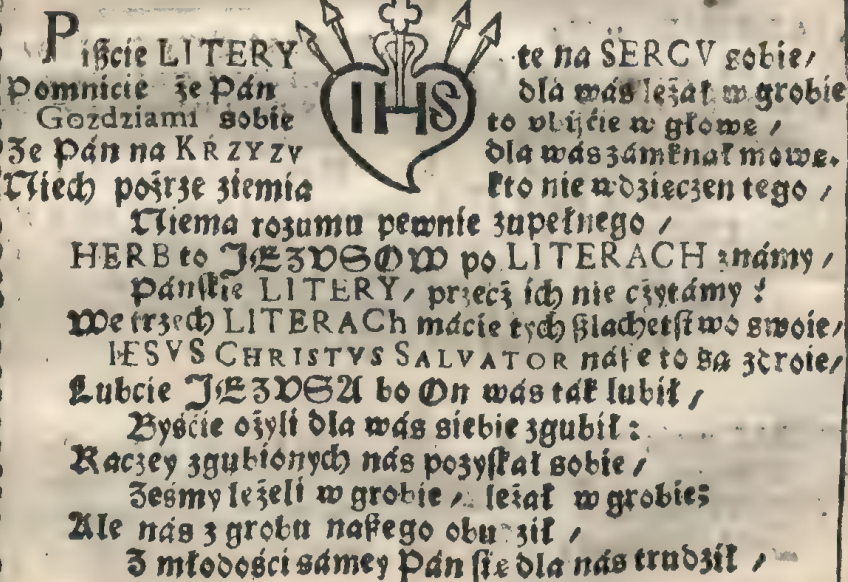 Pißcie LITERY te na SERCV sobie/
Pomnicie że Pán dla wás leżał w grobie
IHS
Gozdziami sobie to vbijćie w głowe /
Że Pán na KRZYZV dla wás zámknał mowe.
Niech pożrze ziemia kto nie wdzieczen tego /
Niema rozumu pewnie zupełnego /
HERB to JEZVSOW po LITERACH známy /
Páńskie LITERY / przecż ich nie czytámy ?
We trzech LITERACh mácie tych ßlachetstwo swoie/
IESVS CHRISTVS SALVATOR náße to sa zdroie/
Lubcie JEZVSA bo On wás ták lubił /
Byśćie ożyli dla wás siebie zgubił :
Raczey zgubionych nás pozyskał sobie /
Żeśmy leżeli w grobie / leżał w grobie;
Ale nás z grobu náßego obudził /
Z młodośći sámey Pán sie dla nás trudził /